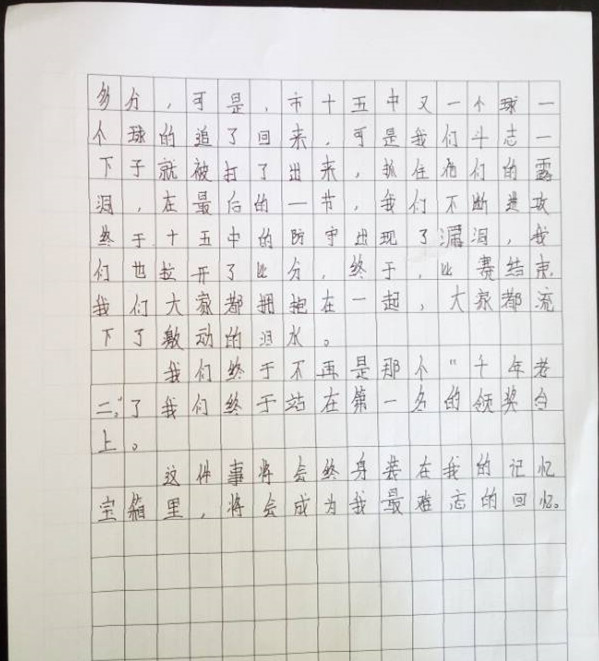 多分，可是，市十五中又一个球一
个球的追了回来，可是我们斗志一
下子就被打了出来，抓住他们的露
洞，在最后的一节，我们不断进攻
终于十五中的防守出现了漏洞，我
们也拉开了比分，终于，比赛结束
我们大家都拥抱在一起，大家都流
下了激动的泪水。
我们终于不再是那个"千年老
二。"了我们终于站在第一名的领奖台
上。
这件事将会终身装在我的记忆
宝箱里，将会成为我最难忘的回忆。